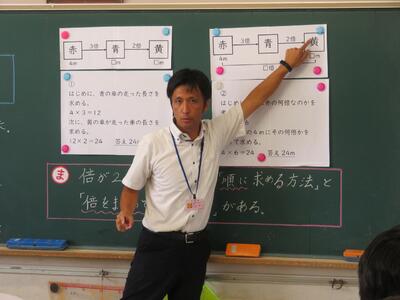 赤 3倍 青 2倍 黄
4m □m □m
①
はじめに、青の車の走った長さを
求める。
4×3=12
次に、黄の車が走った車の長さを
求める。
12×2=24 答え24m
赤 3倍 青 2倍 黄
4m □m
□倍
②
はじめに
の何倍なのかを
求める。
の4mにその何倍かを
て求める。
4×6=24 答え24m
ま 倍が2
「順に求める方法」と
「倍をま
」がある。